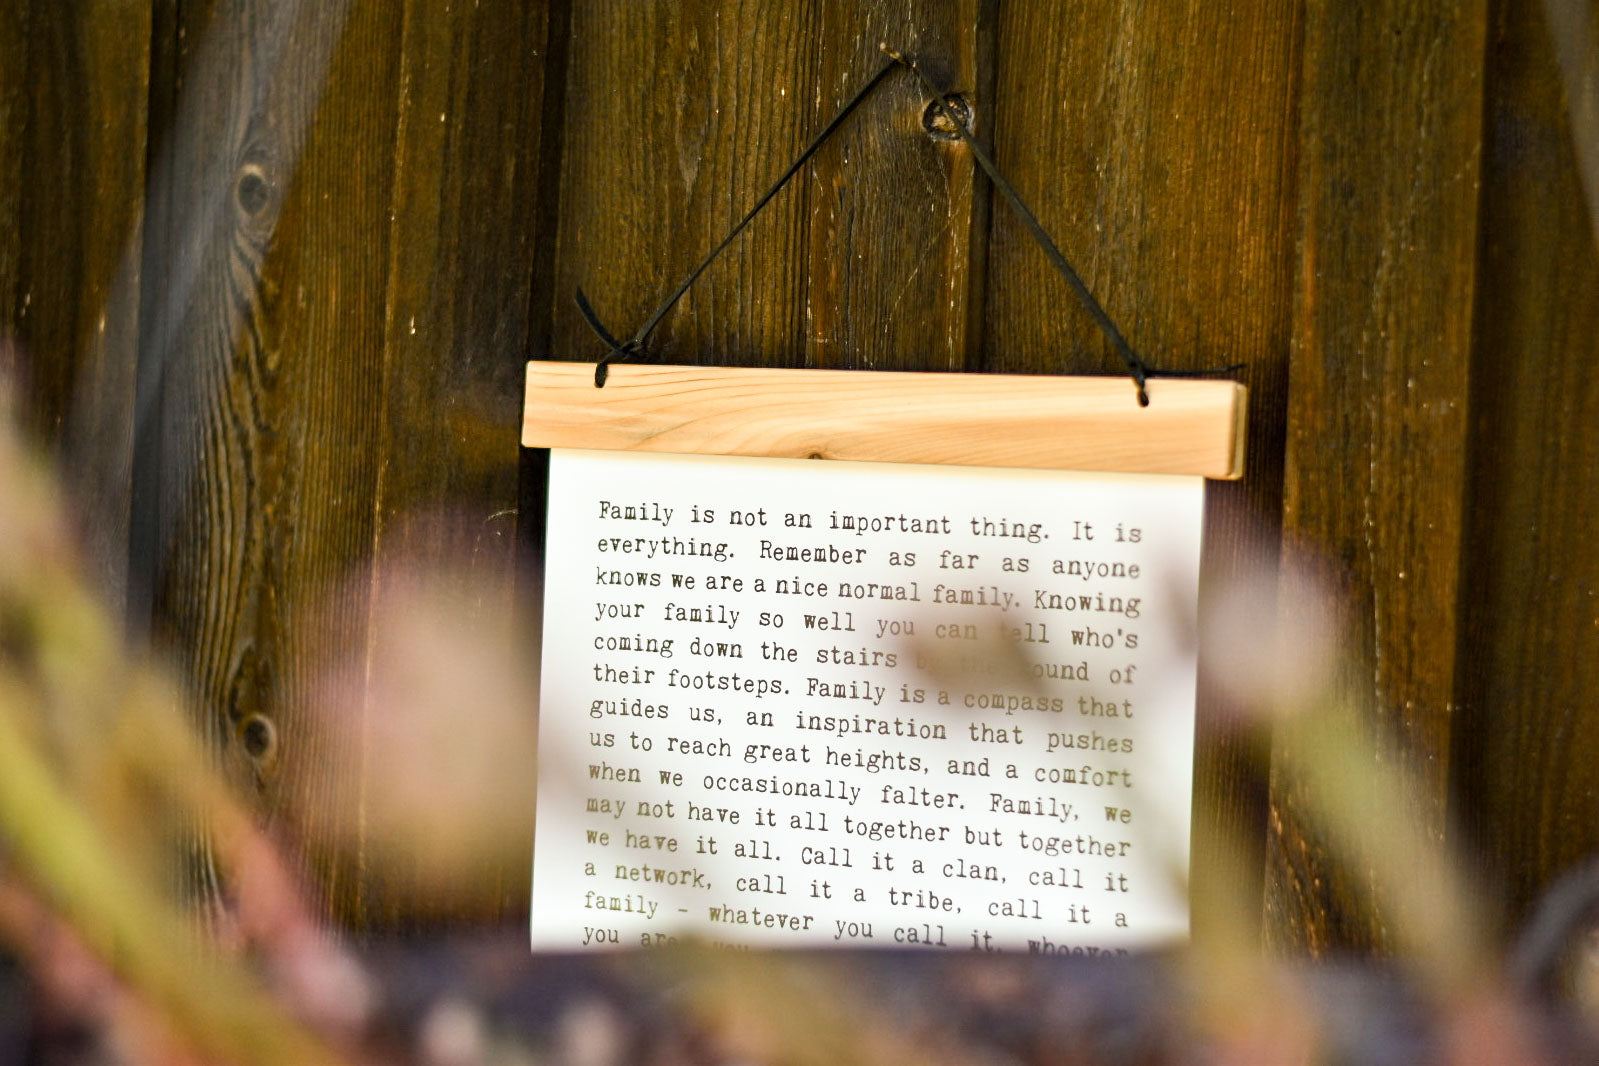 Family is not an important thing. It is
everything. Remember as far as anyone
knows we are a nice normal family. Knowing
your family so well you can tell who's
coming down the stairs by the sound of
their footsteps. Family is a compass that
guides us, an inspiration that pushes
us to reach great heights, and a comfort
when we occasionally falter. Family, we
may not have it all together but together
we have it all. Call it a clan, call it
a network, call it a tribe, call it a
family - whatever you call it, whoever
you are